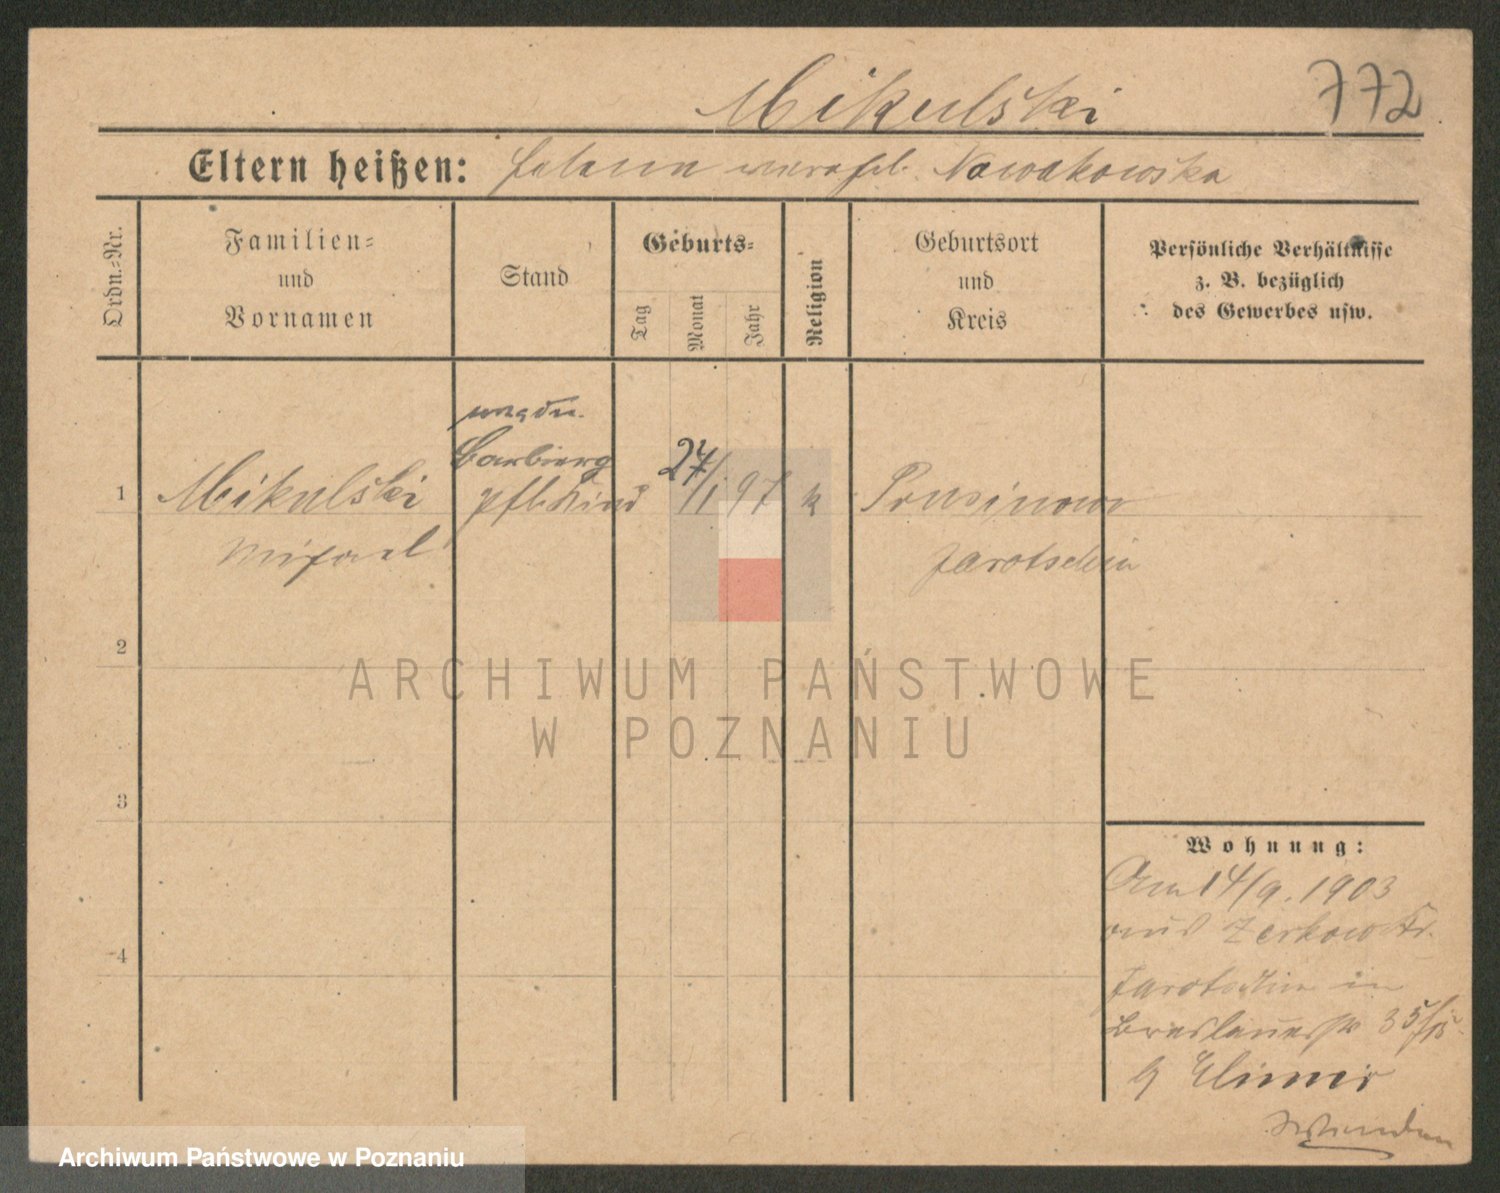 Mikulski
772
Eltern heißen: Nowakowska
Ordn.-Nr.
Familien-
und
Vornamen
Stand
Geburts-
Tag
Monat
Jahr
Religion
Geburtsort
und
Kreis
Persönliche Verhältnisse
z. B. bezüglich
des Gewerbes usw.
1
Mikulski
24/1 97
k
Prusinowo
Jarotschin
2
3
4
Wohnung:
Am 14/9. 1903
aus Zerkow Kr.
Jarotschin in
Breslauerstr 35/
ARCHIWUM PAŃSTWOWE
W POZNANIU
Archiwum Państwowe w Poznaniu